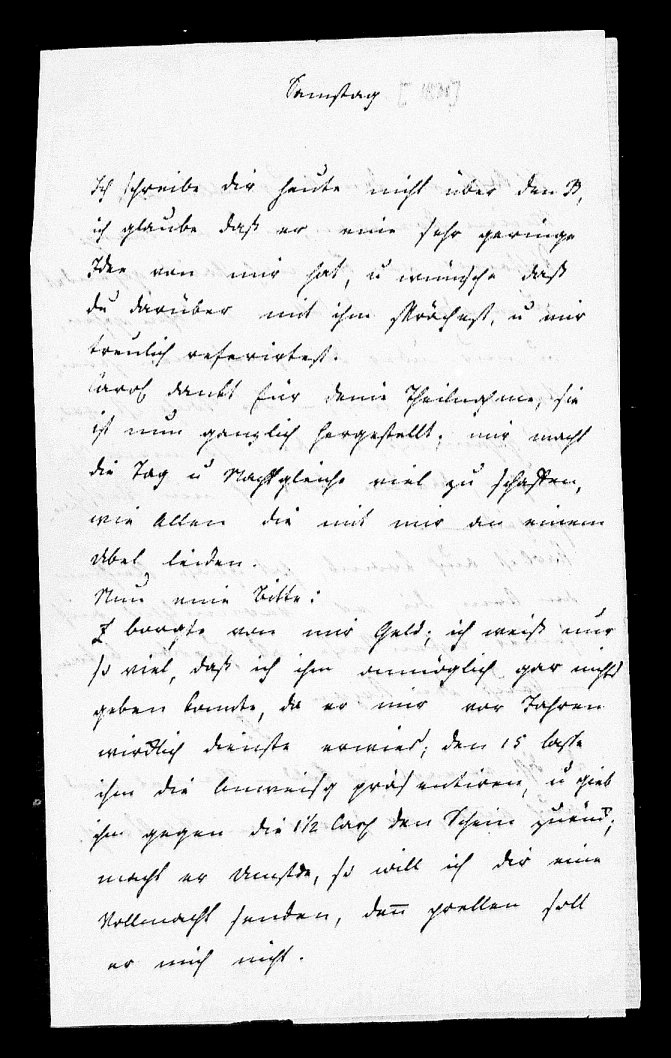 Samstag
Ich schreibe dir heute nicht über den B,
ich glaube daß er eine sehr geringe
Idee von mir hat, u wünsche daß
du darüber mit ihm sprächest, u mir
treulich referirtest.
dankt für deine Theilnahme, sie
ist nun gänzlich hergestellt; mir macht
die Tag u Nachtgleiche viel zu schaffen,
wie Allen die mit mir an einem
Übel leiden.
Nun eine Bitte:
borgte von mir Geld; ich weiß nur
so viel, daß ich ihm unmöglich gar nichts
geben konnte, da er mir vor Jahren
wirklich dienste erwies; den 15 lasse
ihm die Anweisg präsentiren, u gieb
ihm gegen die 1½ den Schein zurük;
macht er Umstde, so will ich dir eine
Vollmacht senden, den̄ prellen soll
er mich nicht.